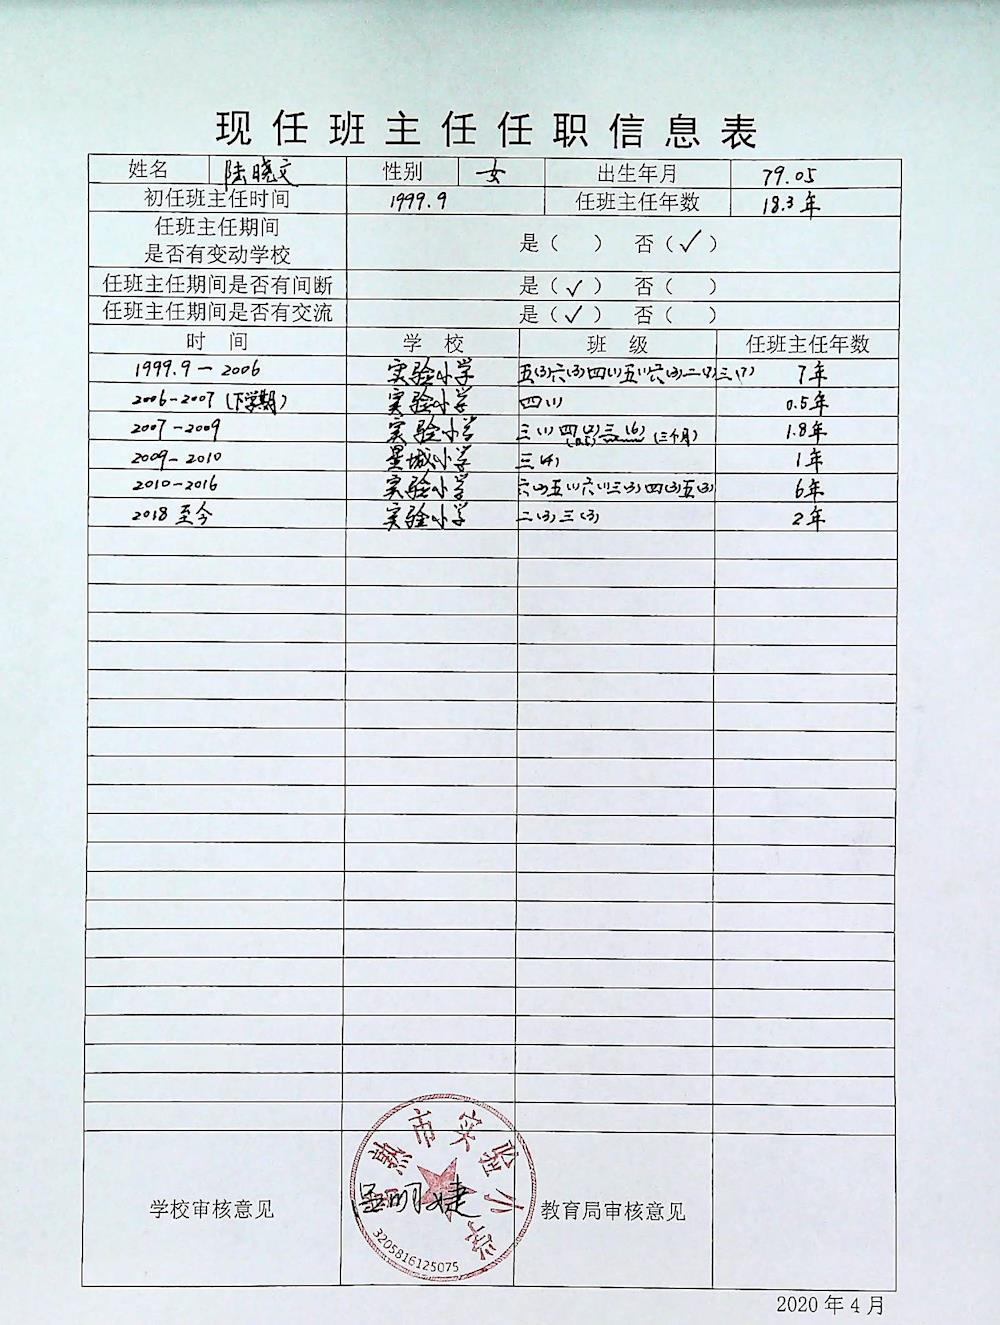 现任班主任任职信息表
姓名 陆晓文 性别 女 出生年月 79.05
初任班主任时间 1999.9 任班主任年数 18.3年
任班主任期间
是否有变动学校 是( ) 否(✓)
任班主任期间是否有间断 是(✓) 否( )
任班主任期间是否有交流 是(✓) 否( )
时 间 学 校 班 级 任班主任年数
1999.9—2006 实验小学 五(3)六(3)四(1)五(1)六(3)二(7)三(7) 7年
2006-2007(下学期) 实验小学 四(1) 0.5年
2007-2009 实验小学 三(1)四(2)三(6)(三个月) 1.8年
(0.5)
2009-2010 星城小学 三(4) 1年
2010-2016 实验小学 六(2)五(1)六(1)三(3)四(3)五(3) 6年
2018至今 实验小学 二(3)三(3) 2年
学校审核意见 教育局审核意见
熟市实验小学
3205816125075
2020年4月